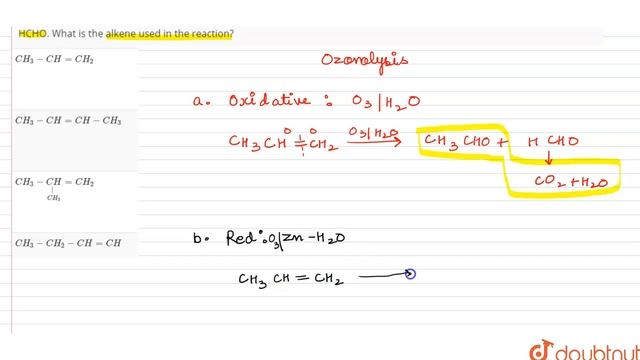 HCHO. What is the alkene used in the reaction?
CH₃ – CH = CH₂
CH₃ – CH = CH – CH₃
CH₃ – CH = CH₂
|
CH₃
CH₃ – CH₂ – CH = CH
Ozonolysis
a. Oxidative : O₃|H₂O
CH₃CH = CH₂ O₃|H₂O → CH₃CHO + HCHO
O O
↓
CO₂ + H₂O
b. Red : O₃|Zn – H₂O
CH₃CH = CH₂ →
doubtnut